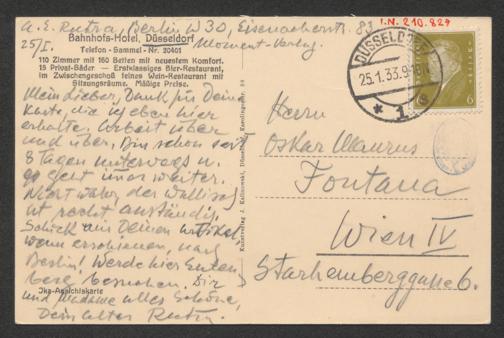 A. E. Rutra, Berlin W 30, Eisenacherstr. 83
25/I. Moment-Verlag
I.N. 210.829
Bahnhofs-Hotel, Düsseldorf
Telefon - Sammel - Nr. 20401
110 Zimmer mit 160 Betten mit neuestem Komfort.
15 Privat-Bäder — Erstklassiges Bier-Restaurant,
im Zwischengeschoß feines Wein-Restaurant mit
Sitzungsräume. Mäßige Preise.
Mein Lieber, Dank für Deine
Karte, die ich eben hier
erhalte. Arbeit über
und über. Bin schon seit
8 Tagen unterwegs u.
es geht immer weiter.
Nicht wahr, der
ist recht anständig.
Schick mir Deinen Artikel,
wenn erschienen, nach
Berlin! Werde hier
besuchen. Dir
und Madame alles Schöne,
Dein alter Rutra.
Jka-Ansichtskarte
DÜSSELDORF
25.1.33.9-10
* 1
6
Herrn
Oskar Maurus
Fontana
Wien IV
Starhemberggasse 6.